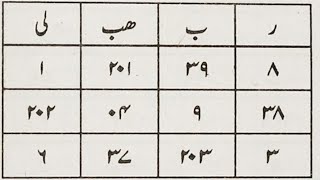 ر ب ھب لی
۸ ۳۹ ۲۰۱ ۱
۳۸ ۹ ۰۴ ۲۰۲
۳ ۲۰۳ ۳۷ ۶